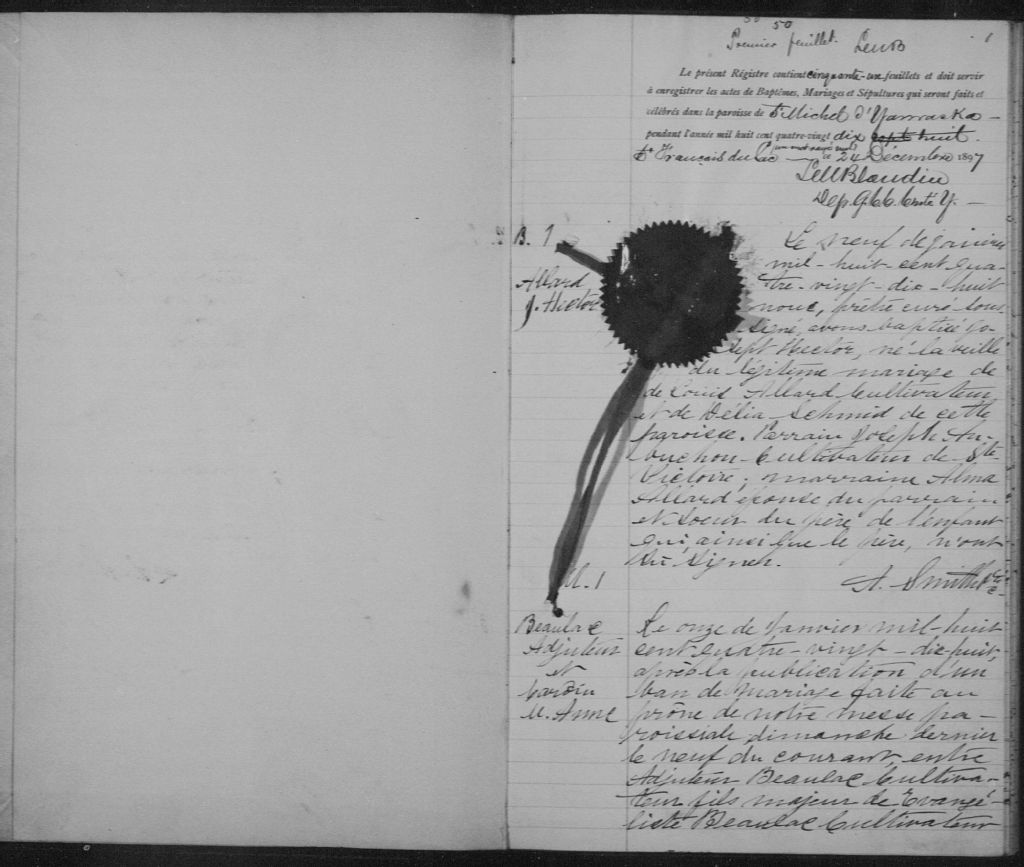 50 50
Premier feuillet. LeUB 1
Le présent Régistre contient cinquante-un feuillets et doit servir
à enregistrer les actes de Baptêmes, Mariages et Sépultures qui seront faits et
célébrés dans la paroisse de St Michel d'Yamaska -
pendant l'année mil huit cent quatre-vingt dix sept huit.
St François du Lac ce 24 Décembre 1897
Dep. Yam
B. 1
Allard
J. Hector
Le neuf de janvier
mil-huit-cent-qua-
tre-vingt-dix-huit
nous, prêtre curé sous
signé, avons baptisé Jo-
seph Hector, né la veille
du légitime mariage de
de Louis Allard Cultivateur
et de Délia Schmid de cette
paroisse. Parrain Joseph Au-
buchon Cultivateur de Ste
Victoire; marraine Alma
Allard épouse du parrain
et soeur du père de l'enfant
qui, ainsi que le père, n'ont
su signer.
A. Smith Ptre
M. 1
Beaulac
Adjuteur
et
Cardin
M. Anne
Le onze de Janvier mil-huit
cent quatre-vingt-dix-huit,
après la publication d'un
ban de mariage faite au
prône de notre messe pa-
roissiale, dimanche dernier
le neuf du courant, entre
Adjuteur Beaulac Cultiva-
teur fils majeur de Evangé-
liste Beaulac Cultivateur